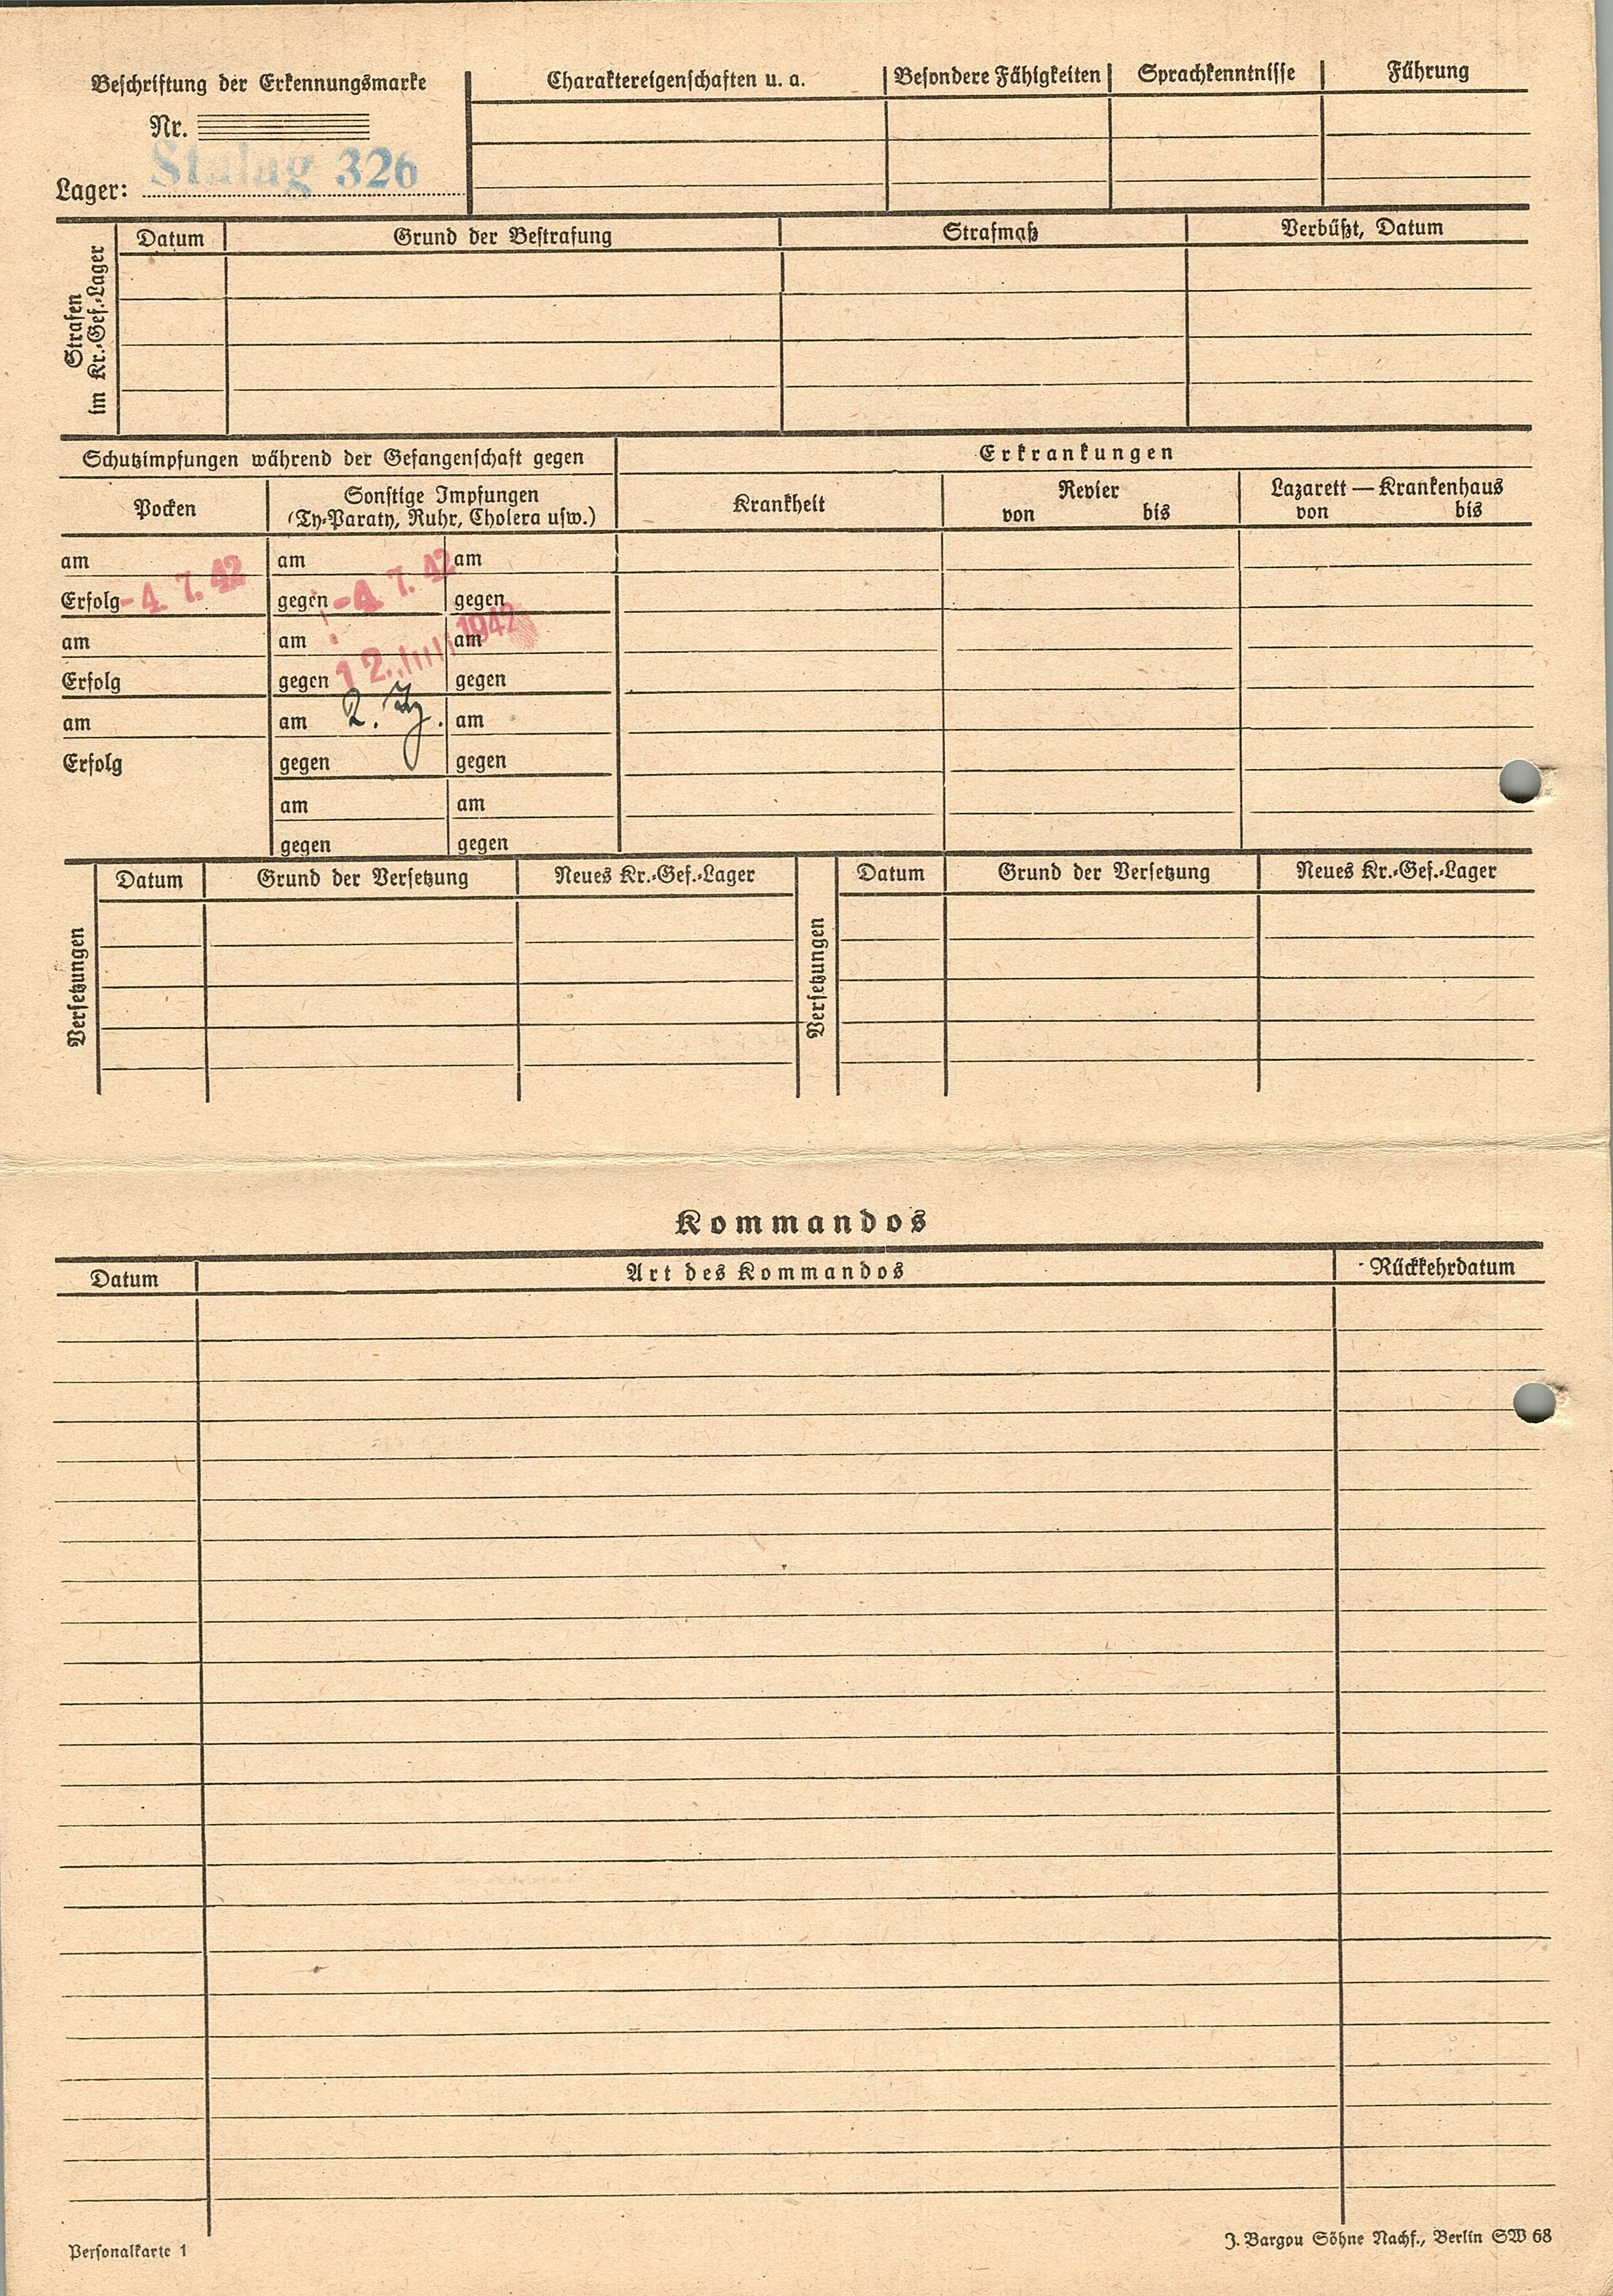 Beschriftung der Erkennungsmarke
Nr.
Stalag 326
Lager:
Charaktereigenschaften u. a. Besondere Fähigkeiten Sprachkenntnisse Führung
Strafen
im Kr.-Gef.-Lager
Datum Grund der Bestrafung Strafmaß Verbüßt, Datum
Schutzimpfungen während der Gefangenschaft gegen
Erkrankungen
Pocken
Sonstige Impfungen
(Ty-Paraty, Ruhr, Cholera usw.)
Krankheit
Revier
von bis
Lazarett — Krankenhaus
von bis
am am am
Erfolg -4. 7. 42 gegen -4. 7. 42 gegen
am am am
12. Juli 1942
Erfolg gegen gegen
am am 2. Ty. am
Erfolg gegen gegen
am am
gegen gegen
Versetzungen
Datum Grund der Versetzung Neues Kr.-Gef.-Lager
Versetzungen
Datum Grund der Versetzung Neues Kr.-Gef.-Lager
Kommandos
Datum Art des Kommandos Rückkehrdatum
Personalkarte 1
J. Bargou Söhne Nachf., Berlin SW 68